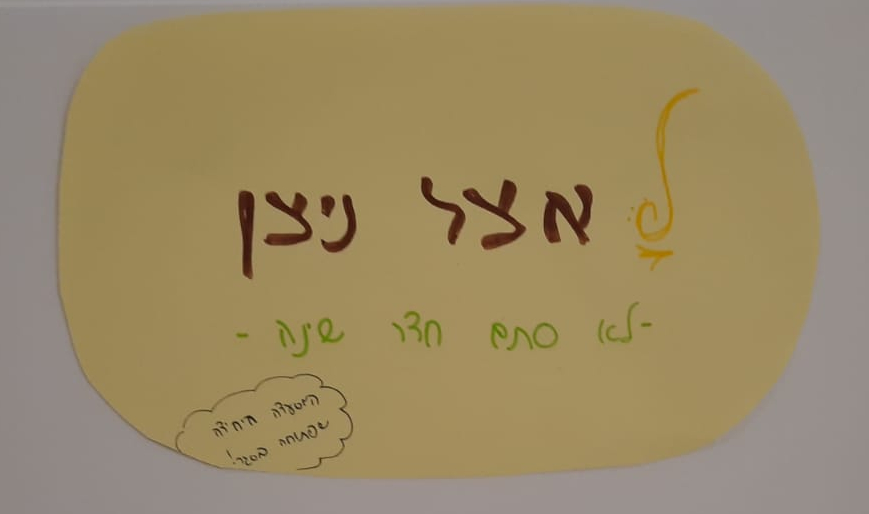 אצל ניצן
-לא סתם חדר שינה-
המסעדה היחידה
שפתוחה בסגר!